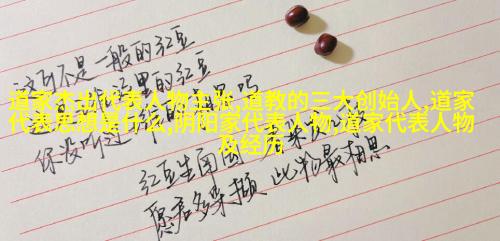 这可不是一般的红豆
这里的红豆
道家杰出代表人物主张,道教的三大创始人,道家
代表思想是什么,阴阳家代表人物,道家代表人物
及经历
你没听过
吗
红豆生南国
愿君多采撷 此物最相思